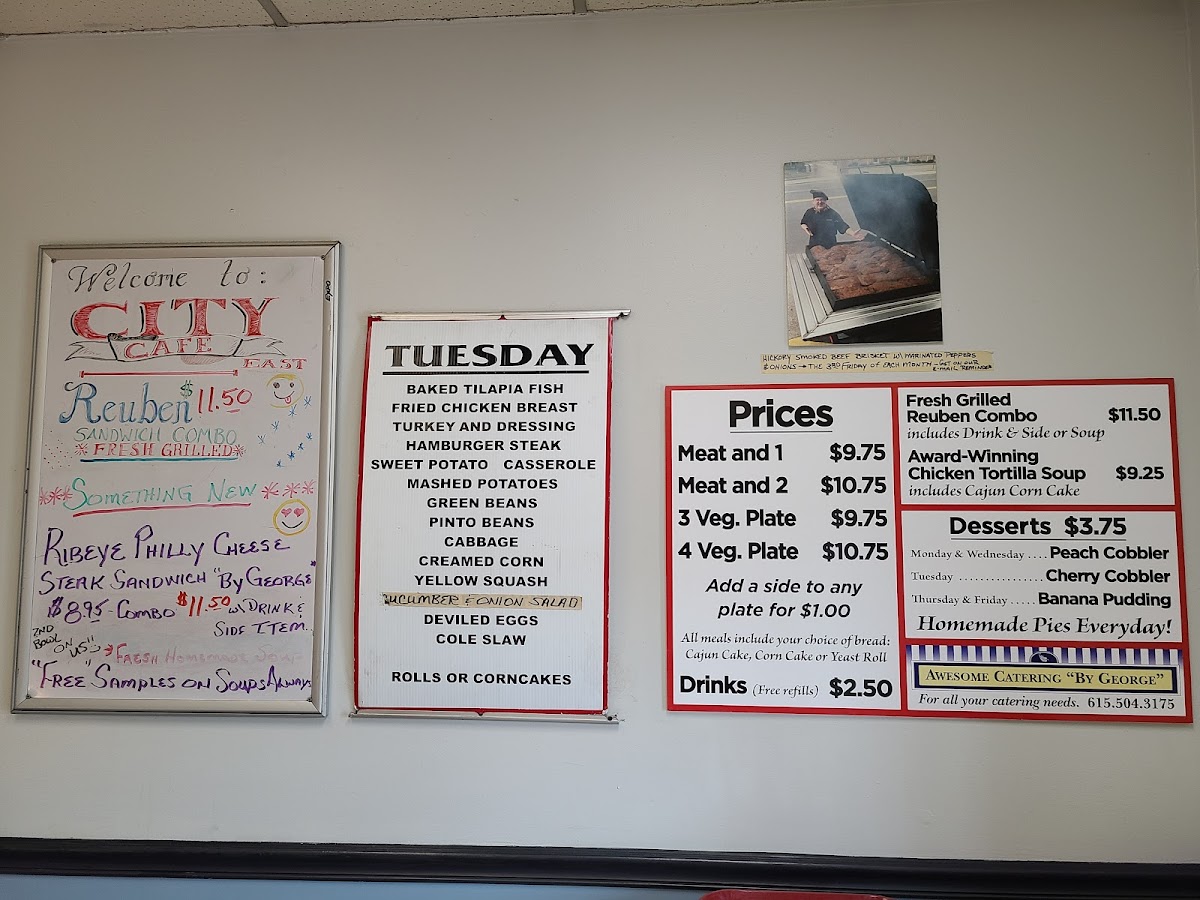 Welcome to:
CITY
CAFE
EAST
Reuben $11.50
SANDWICH COMBO
FRESH GRILLED
SOMETHING NEW
RIBEYE PHILLY CHEESE
STEAK SANDWICH "BY GEORGE"
$8.95 - COMBO $11.50 W/ DRINK &
SIDE ITEM
2ND
BOWL ON
US!!
FRESH HOMEMADE SOUP
"FREE" SAMPLES ON SOUPS ALWAYS
TUESDAY
BAKED TILAPIA FISH
FRIED CHICKEN BREAST
TURKEY AND DRESSING
HAMBURGER STEAK
SWEET POTATO CASSEROLE
MASHED POTATOES
GREEN BEANS
PINTO BEANS
CABBAGE
CREAMED CORN
YELLOW SQUASH
CUCUMBER & ONION SALAD
DEVILED EGGS
COLE SLAW
ROLLS OR CORNCAKES
HICKORY SMOKED BEEF BRISKET W/ MARINATED PEPPERS
& ONIONS → THE 3RD FRIDAY OF EACH MONTH - GET ON OUR
E-MAIL REMINDER
Prices
Meat and 1 $9.75
Meat and 2 $10.75
3 Veg. Plate $9.75
4 Veg. Plate $10.75
Add a side to any
plate for $1.00
All meals include your choice of bread:
Cajun Cake, Corn Cake or Yeast Roll
Drinks (Free refills) $2.50
Fresh Grilled
Reuben Combo $11.50
includes Drink & Side or Soup
Award-Winning
Chicken Tortilla Soup $9.25
includes Cajun Corn Cake
Desserts $3.75
Monday & Wednesday .... Peach Cobbler
Tuesday ................ Cherry Cobbler
Thursday & Friday ..... Banana Pudding
Homemade Pies Everyday!
AWESOME CATERING "BY GEORGE"
For all your catering needs. 615.504.3175